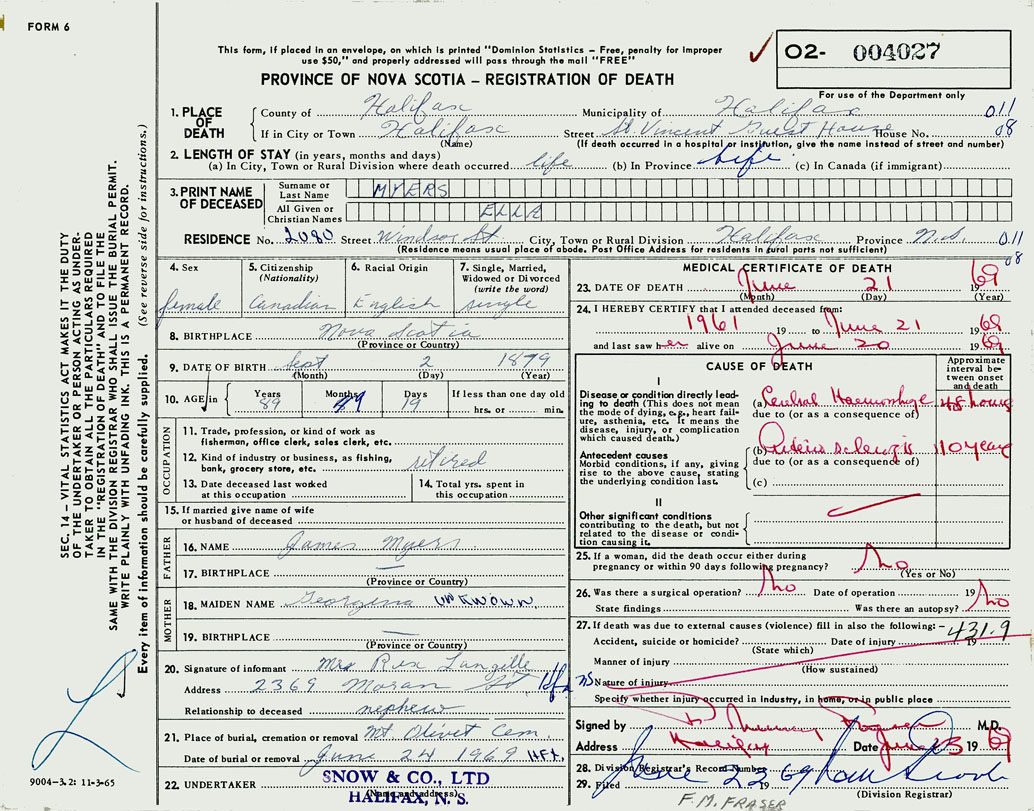 FORM 6
This form, if placed in an envelope, on which is printed "Dominion Statistics – Free, penalty for improper
use $50," and properly addressed will pass through the mail "FREE"
PROVINCE OF NOVA SCOTIA – REGISTRATION OF DEATH
O2- 004027
For use of the Department only
1. PLACE OF DEATH
County of Halifax Municipality of Halifax 011
If in City or Town Halifax Street St Vincent Guest House House No. 08
(Name) (If death occurred in a hospital or institution, give the name instead of street and number)
2. LENGTH OF STAY (in years, months and days)
(a) In City, Town or Rural Division where death occurred life (b) In Province life (c) In Canada (if immigrant)
3. PRINT NAME OF DECEASED
Surname or Last Name MYERS
All Given or Christian Names ELLA
RESIDENCE No. 2080 Street Windsor St City, Town or Rural Division Halifax Province N.S. 011
(Residence means usual place of abode. Post Office Address for residents in rural parts not sufficient) 08
4. Sex female
5. Citizenship (Nationality) Canadian
6. Racial Origin English
7. Single, Married, Widowed or Divorced (write the word) single
8. BIRTHPLACE Nova Scotia
(Province or Country)
9. DATE OF BIRTH Sept 2 1879
(Month) (Day) (Year)
10. AGE in Years 89 Months 9 Days 19 If less than one day old
hrs. or min.
OCCUPATION
11. Trade, profession or kind of work as
fisherman, office clerk, sales clerk, etc.
12. Kind of industry or business, as fishing,
bank, grocery store, etc. retired
13. Date deceased last worked
at this occupation
14. Total yrs. spent in
this occupation
15. If married give name of wife
or husband of deceased
FATHER
16. NAME James Myers
17. BIRTHPLACE —
(Province or Country)
MOTHER
18. MAIDEN NAME Georgina UNKNOWN
19. BIRTHPLACE —
(Province or Country)
20. Signature of informant Mrs Rex Langille
Address 2369 Moran St Hfx NS
Relationship to deceased nephew
21. Place of burial, cremation or removal Mt. Olivet Cem.
Date of burial or removal June 24 1969 HFX.
22. UNDERTAKER SNOW & CO., LTD
(Name and address)
HALIFAX, N. S.
MEDICAL CERTIFICATE OF DEATH
23. DATE OF DEATH June 21 1969
(Month) (Day) (Year)
24. I HEREBY CERTIFY that I attended deceased from:
1961 19 to June 21 1969
and last saw her alive on June 20 1969
CAUSE OF DEATH
Approximate interval between onset and death
I
Disease or condition directly leading to death (This does not mean the mode of dying, e.g., heart failure, asthenia, etc. It means the disease, injury, or complication which caused death.)
(a) Cerebral Haemorrhage 48 hours
due to (or as a consequence of)
Antecedent causes
Morbid conditions, if any, giving rise to the above cause, stating the underlying condition last.
(b) Arteriosclerosis 10 years
due to (or as a consequence of)
(c)
II
Other significant conditions
contributing to the death, but not related to the disease or condition causing it.
25. If a woman, did the death occur either during
pregnancy or within 90 days following pregnancy? No
(Yes or No)
26. Was there a surgical operation? No Date of operation 19
State findings Was there an autopsy? No
27. If death was due to external causes (violence) fill in also the following: – 431.9
Accident, suicide or homicide? Date of injury 19
(State which)
Manner of injury
(How sustained)
Nature of injury
Specify whether injury occurred in Industry, in home, or in public place
Signed by M.D.
Address Halifax Date June 23 1969
28. Division Registrar's Record Number
29. Filed June 22 69
(Division Registrar)
F.M. FRASER
SEC. 14 – VITAL STATISTICS ACT MAKES IT THE DUTY
OF THE UNDERTAKER OR PERSON ACTING AS UNDER-
TAKER TO OBTAIN ALL THE PARTICULARS REQUIRED
IN THE "REGISTRATION OF DEATH" AND TO FILE THE
SAME WITH THE DIVISION REGISTRAR WHO SHALL ISSUE THE BURIAL PERMIT.
WRITE PLAINLY WITH UNFADING INK. THIS IS A PERMANENT RECORD.
Every item of information should be carefully supplied. (See reverse side for instructions.)
9004-3.2: 11-3-65